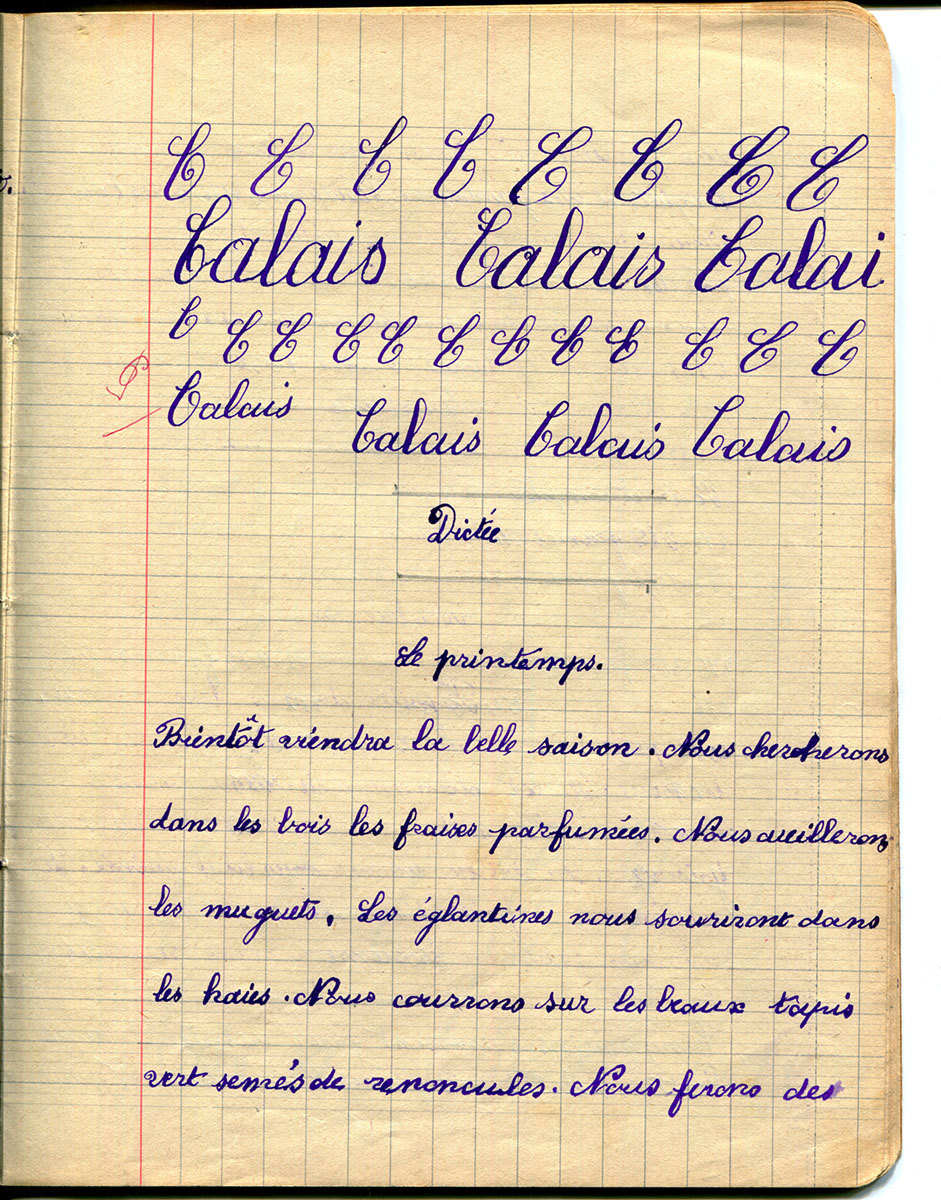 C C C C C C C C
Calais Calais Calai
C C C C C C C C C C C C
Calais Calais Calais Calais
Dictée
Le printemps.
Bientôt viendra la belle saison. Nous chercherons
dans les bois les fraises parfumées. Nous cueillerons
les muguets. Les églantines nous souriront dans
les haies. Nous courrons sur les beaux tapis
vert semés de renoncules. Nous ferons des